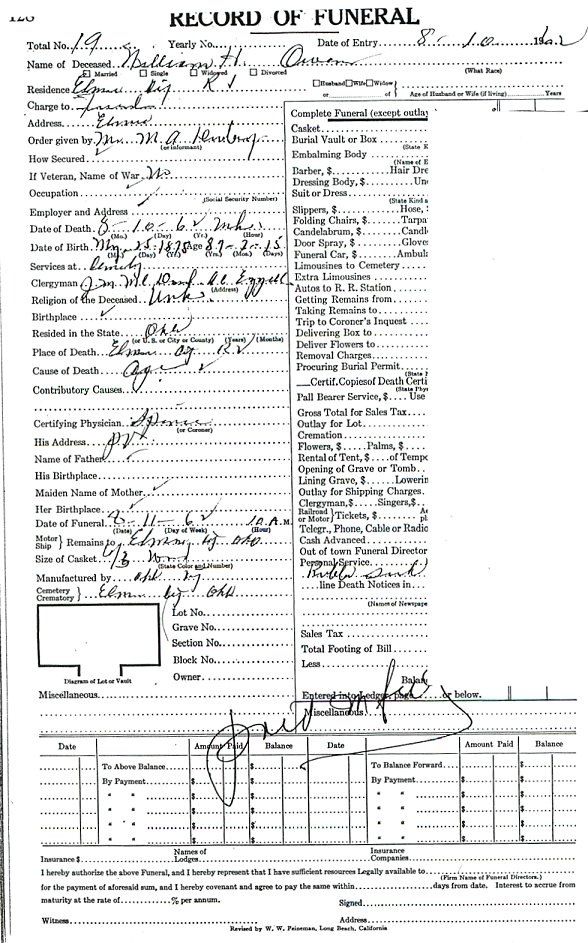 RECORD OF FUNERAL
Total No. 19 Yearly No. Date of Entry 8 - 10 - 1962
Name of Deceased William H. Owen
Married Single Widowed Divorced (What Race)
Residence Elmer
Husband Wife Widow
or of Age of Husband or Wife (if living) Years
Charge to
Complete Funeral (except outlay
Address Elmer
Casket
Order given by Mr. M. A.
(or informant)
Burial Vault or Box
(State K
How Secured
Embalming Body
(Name of E
If Veteran, Name of War No
Barber, $ Hair Dre
Dressing Body, $ Un
Occupation
(Social Security Number)
Suit or Dress
(State Kind a
Employer and Address
Slippers, $ Hose, $
Date of Death 8 - 10 - 62
(Mo.) (Day) (Yr.) (Hour)
Folding Chairs, $ Tarpa
Candelabrum, $ Candl
Date of Birth May 25 1875 Age 87 - 2 - 15
(Mo.) (Day) (Yr.) (Yrs.) (Mon.) (Days)
Door Spray, $ Glove
Funeral Car, $ Ambul
Services at
Limousines to Cemetery
Clergyman
(Address)
Extra Limousines
Autos to R. R. Station
Religion of the Deceased Unk
Getting Remains from
Birthplace
Taking Remains to
Trip to Coroner's Inquest
Resided in the State Okla
(or U. S. or City or County) (Years) (Months)
Delivering Box to
Place of Death Elmer
Deliver Flowers to
Removal Charges
Cause of Death Age
Procuring Burial Permit
(State P
Contributory Causes
Certif. Copies of Death Certi
(State Phys
Pall Bearer Service, $ Use
Gross Total for Sales Tax
Certifying Physician
(or Coroner)
Outlay for Lot
Cremation
His Address
Flowers, $ Palms, $
Name of Father
Rental of Tent, $ of Tempo
His Birthplace
Opening of Grave or Tomb
Lining Grave, $ Lowerin
Maiden Name of Mother
Outlay for Shipping Charges
Clergyman, $ Singers, $
Her Birthplace
Railroad or Motor } Tickets, $
Date of Funeral 8 - 11 - 62 10 A.M.
(Date) (Day of Week) (Hour)
Telegr., Phone, Cable or Radio
Motor Ship } Remains to Elmer
Cash Advanced
Size of Casket 6/3
(State Color and Number)
Out of town Funeral Director
Personal Service
Manufactured by
line Death Notices in
Cemetery Crematory } Elmer
(Names of Newspape
Lot No.
Grave No.
Section No.
Sales Tax
Block No.
Total Footing of Bill
Owner
Less
Diagram of Lot or Vault
Balan
Miscellaneous
Entered into Ledger, page or below.
Miscellaneous
Paid
Date Amount Paid Balance Date Amount Paid Balance
To Above Balance $ $ To Balance Forward $ $
By Payment $ $ By Payment $ $
" " $ $ " " $ $
" " $ $ " " $ $
" " $ $ " " $ $
" " $ $ " " $ $
Insurance $ Names of Lodges Insurance Companies
I hereby authorize the above Funeral, and I hereby represent that I have sufficient resources Legally available to
(Firm Name of Funeral Directors.)
for the payment of aforesaid sum, and I hereby covenant and agree to pay the same within days from date. Interest to accrue from
maturity at the rate of % per annum. Signed
Witness Address
Revised by W. W. Feineman, Long Beach, California